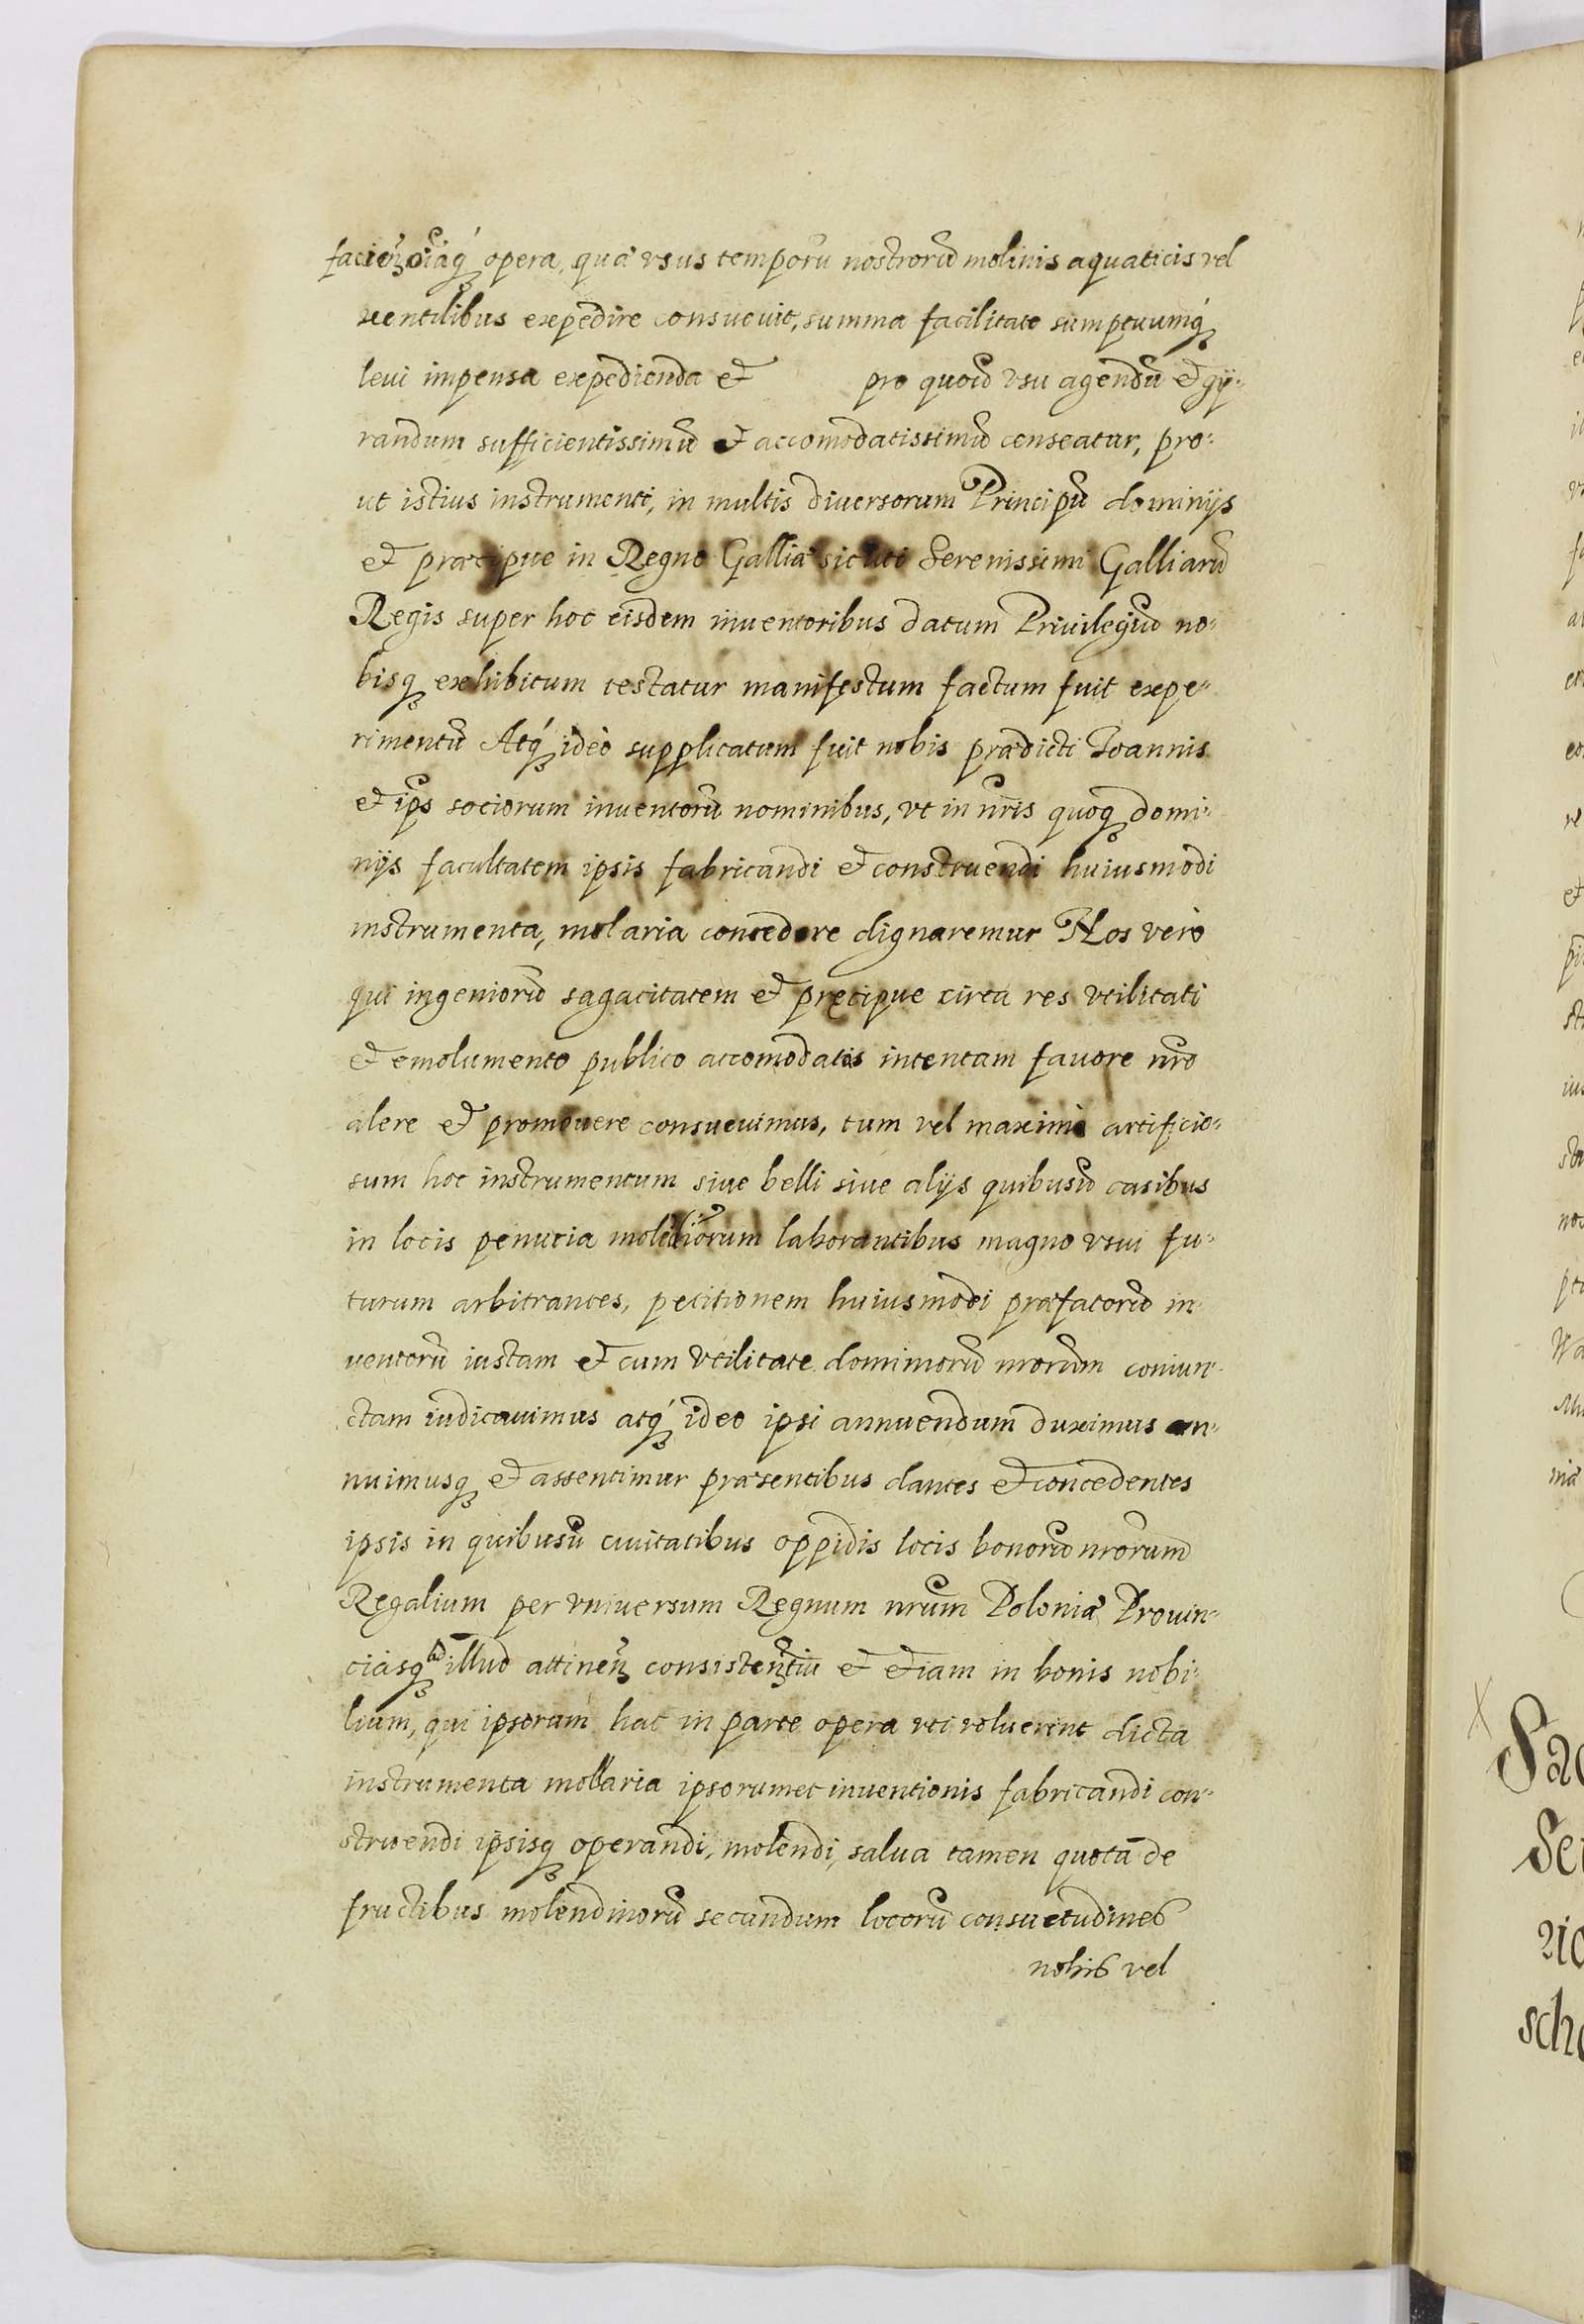 opera, quæ usus temporū nostrorū molinis aquaticis vel
ventilibus expedire consuevit, summa facilitate sumptuumq́
levi impensa expedienda et pro quovū usu agendū et gÿ-
randum sufficientissimū et accomodatissimū censeatur, pro-
ut istius instrumenti, in multis diversorum Principū dominijs
et præcipue in Regno Galliæ sicuti Serenissimi Galliarū
Regis super hoc eisdem inventoribus datum Privilegiū no-
bisq exhibitum testatur manifestum factum fuit expe-
rimentū Atq́ ideò supplicatum fuit nobis prædicti Joannis
et ips sociorum inventorū nominibus, vt in nr̄is quoq domi-
nijs facultatem ipsis fabricandi et construendi huiusmodi
instrumenta, molaria concedere dignaremur Nos verò
qui ingeniorū sagacitatem et pręcipue circa res vtilitati
et emolumento publico accomodatis intentam favore nr̄o
alere et promovere consuevimus, tum vel maximè artificio-
sum hoc instrumentum sive belli sive alijs quibusū casibus
in locis penuria laborantibus magno vsui fu-
turum arbitrantes, petitionem huiusmodi præfatorū in-
ventorū iustam et cum vtilitate dominiorū nrorum coniun-
ctam iudicavimus atq́ ideo ipsi annuendum duximus an-
nuimusq et assentimur præsentibus dantes et concedentes
ipsis in quibusū civitatibus oppidis locis bonorū nrorum
Regalium per vniversum Regnum nrum Poloniæ Provin-
ciasq ad illud attineñ consistentiū et etiam in bonis nobi-
lium, qui ipsorum hac in parte opera vti voluerint dicta
instrumenta mollaria ipsorumet inventionis fabricandi con-
struendi ipsisq operandi, molendi, salva tamen quota de
fructibus molendinorū secundum locorū consuetudines
nobis vel